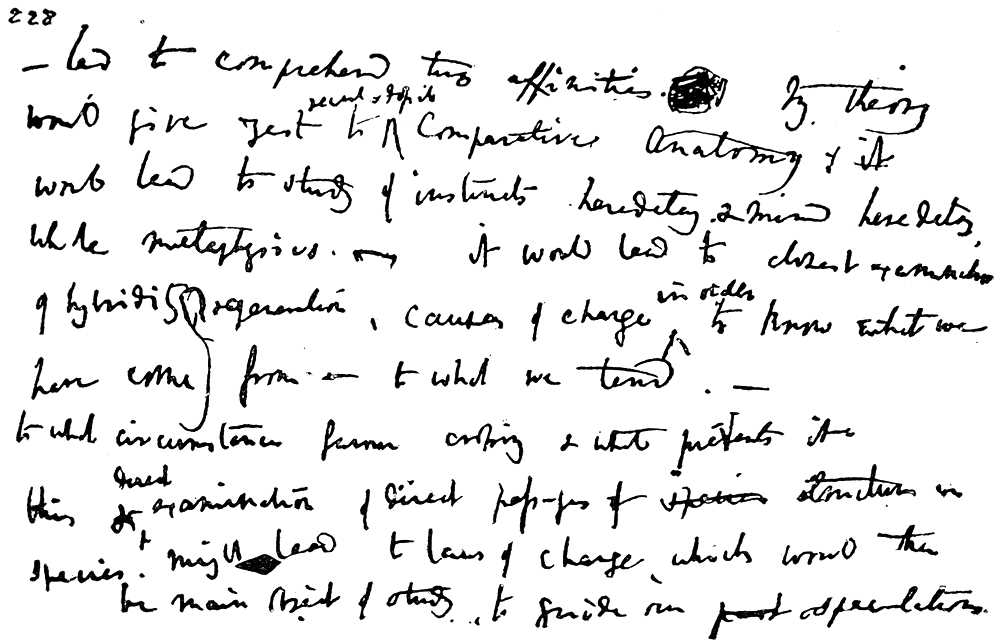 228
— lead to comprehend true affinities. My theory
would give zest to recent & fossil Comparative Anatomy, & it
would lead to study of instincts hereditary & mind hereditary,
whole metaphysics. — it would lead to closest examination
of hybridity regeneration, causes of change in order to know what we
have come from & to what we tend. —
to what circumstances favour crossing & what prevents it —
this & direct examination of direct passages of species structure in
species. might lead to laws of change, which would then
be main object of study, to guide our past speculations